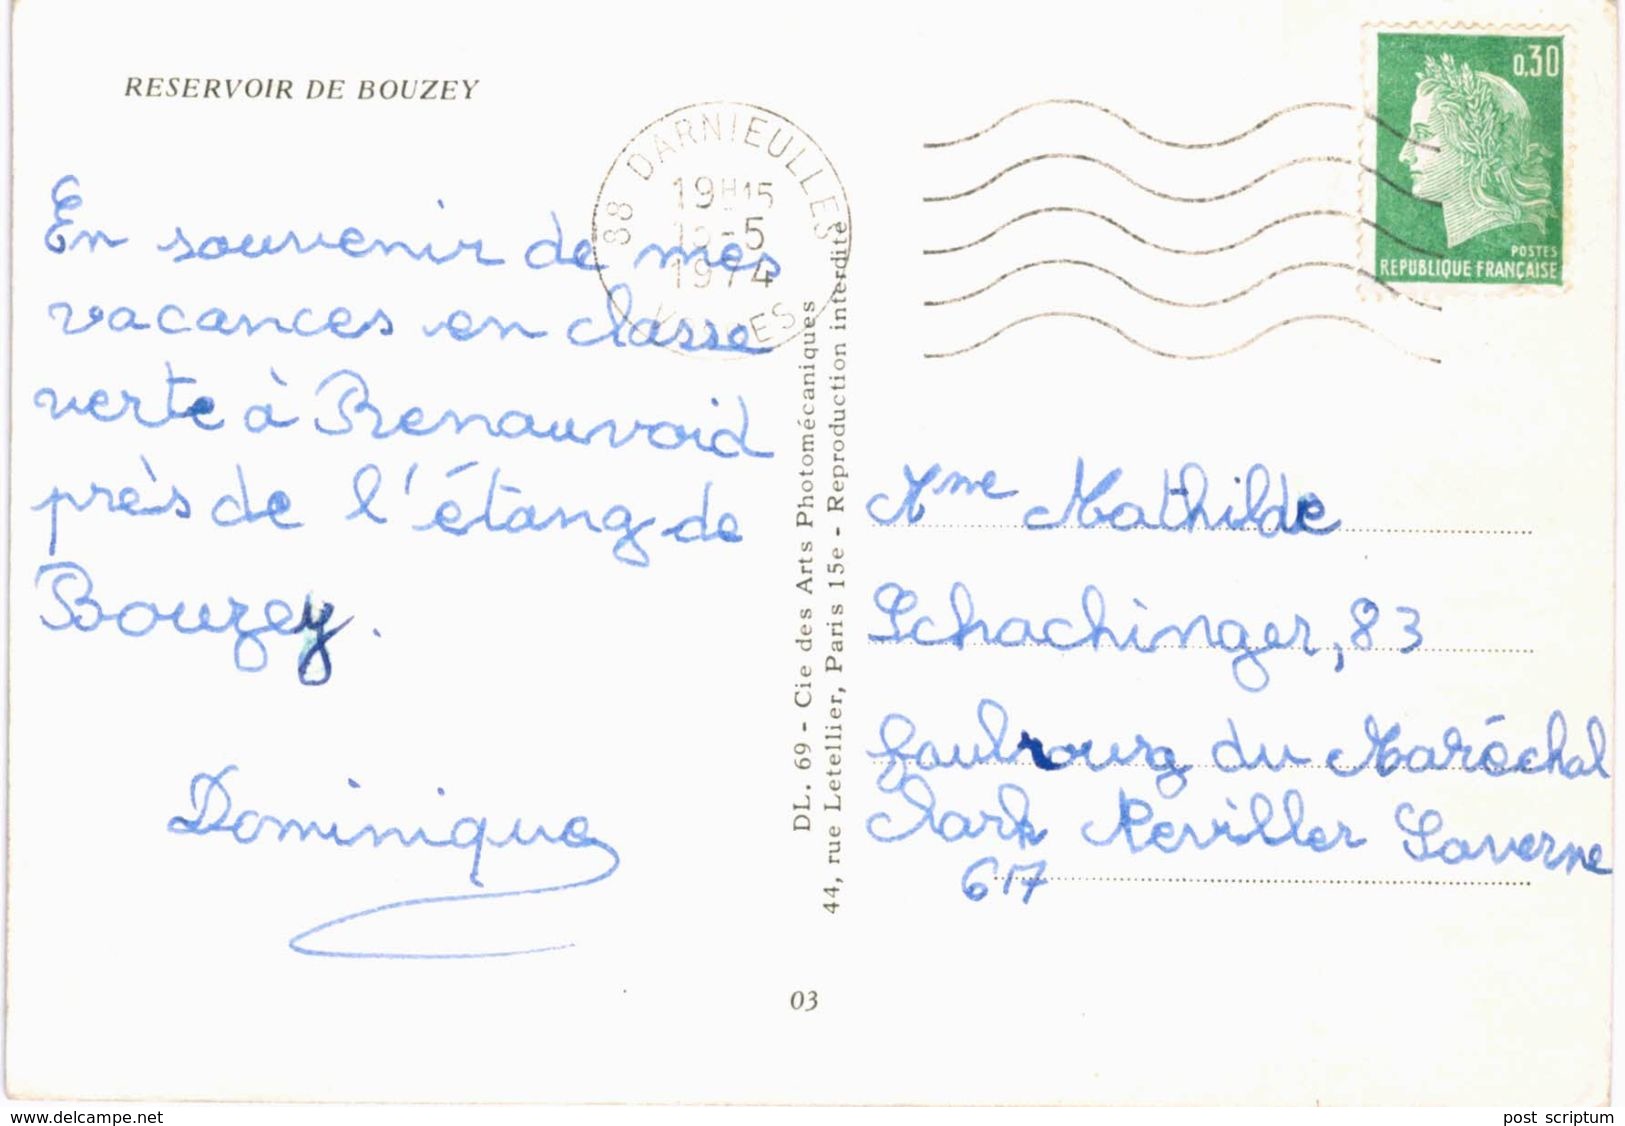 RESERVOIR DE BOUZEY
En souvenir de mes
vacances en classe
verte à Renauvoid
près de l'étang de
Bouzey.
Dominique
88 DARNIEULLES
19H15
-5
1974
VOSGES
DL. 69 - Cie des Arts Photomécaniques
44, rue Letellier, Paris 15e - Reproduction interdite
03
0,30
POSTES
REPUBLIQUE FRANÇAISE
Mme Mathilde
Schachinger, 83
faubourg du Maréchal
Clark Reviller Saverne
617
www.delcampe.net
post scriptum